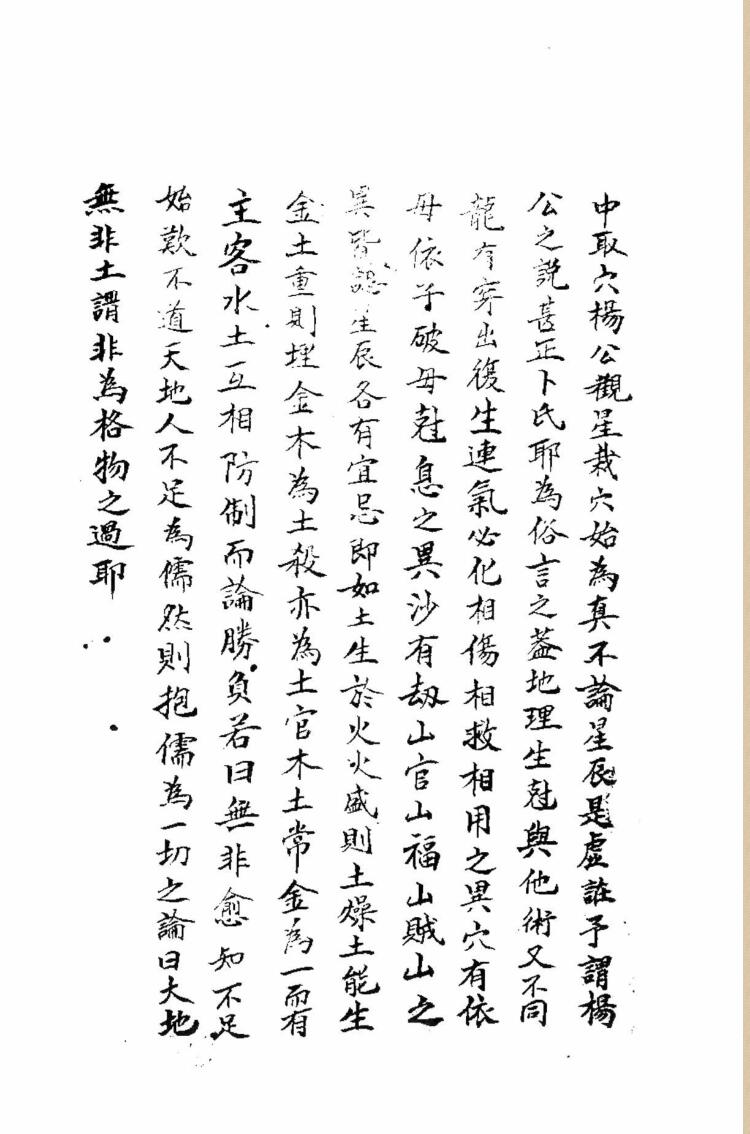 中取穴楊公觀星栽穴始為真不論星辰是虛誑予謂楊
公之說甚正卜氏耶為俗言之蓋地理生尅與他術又不同
龍有穿出復生連氣必化相傷相救相用之異穴有依
母依子破母尅息之異沙有劫山官山福山賊山之
異皆認星辰各有宜忌即如土生於火火盛則土燥土能生
金土重則埋金木為土殺亦為土官木土常金為一而有
主客水土互相防制而論勝負若曰無非愈知不足
始歎不道天地人不足為儒然則抱儒為一切之論曰大地
無非土謂非為格物之過耶